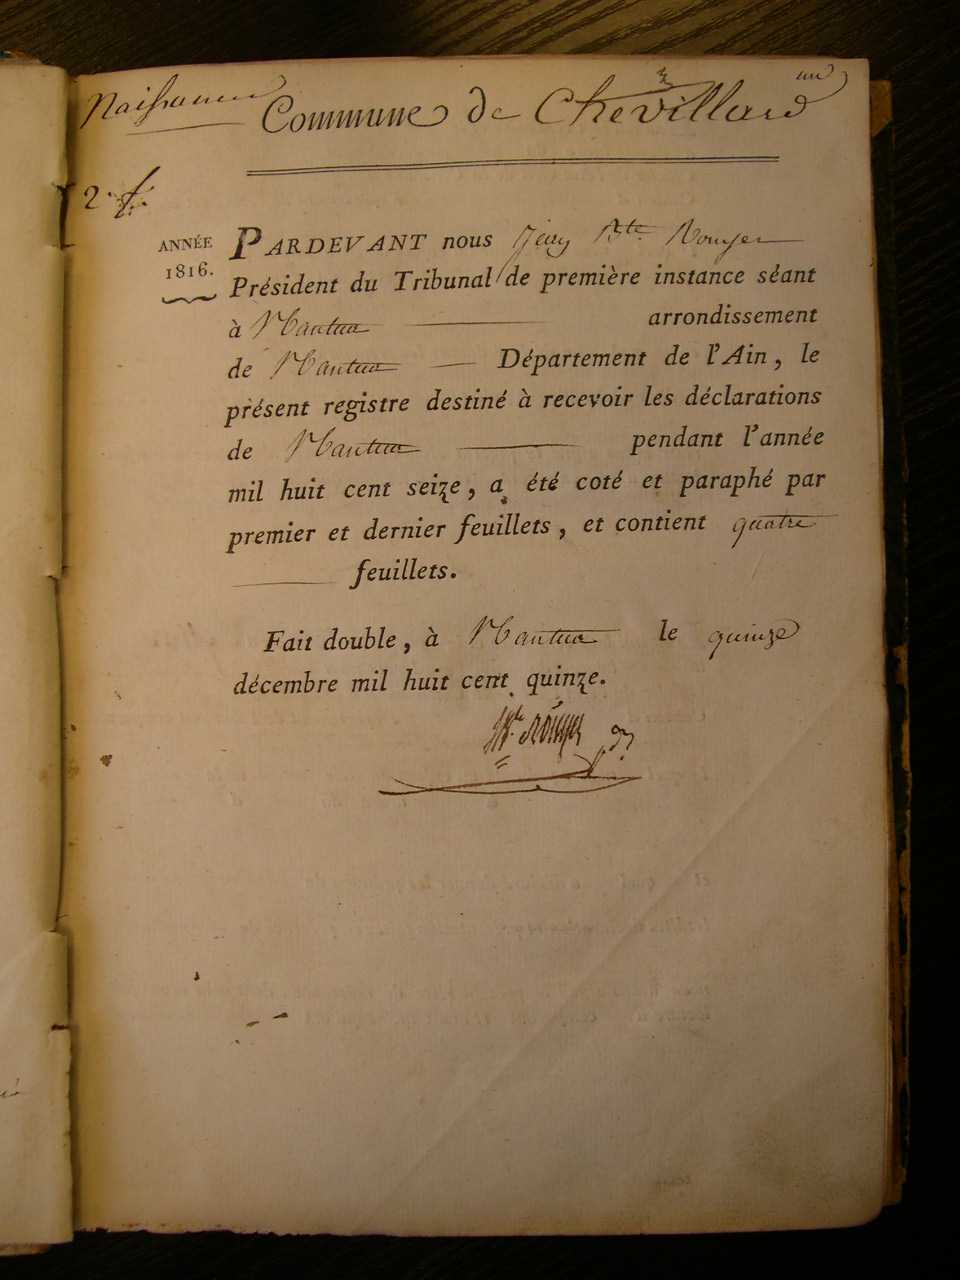 un
Naissances
Commune de Chevillard
2. f.
ANNÉE
1816.
PARDEVANT nous Jean Bte. Rouyer
Président du Tribunal de première instance séant
à Nantua arrondissement
de Nantua Département de l'Ain, le
présent registre destiné à recevoir les déclarations
de Nantua pendant l'année
mil huit cent seize, a été coté et paraphé par
premier et dernier feuillets, et contient quatre
feuillets.
Fait double, à Nantua le quinze
décembre mil huit cent quinze.